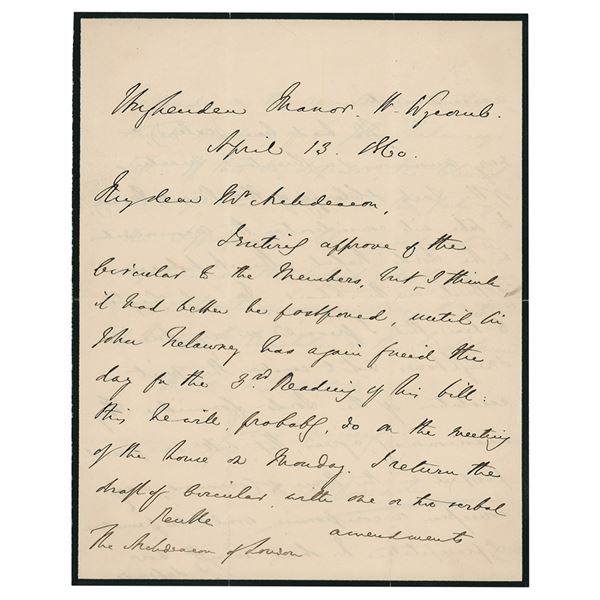 Hughenden Manor. H. Wycomb.
April 13. 1860.
My dear Mr Archdeacon,
I entirely approve of the
Circular to the Members, but, I think
it had better be postponed, until Sir
John Trelawney has again fixed the
day for the 3rd Reading of his bill:
this he will, probably, do on the meeting
of the house on Monday. I return the
draft of Circular, with one or two verbal
amendments
The Archdeacon of London